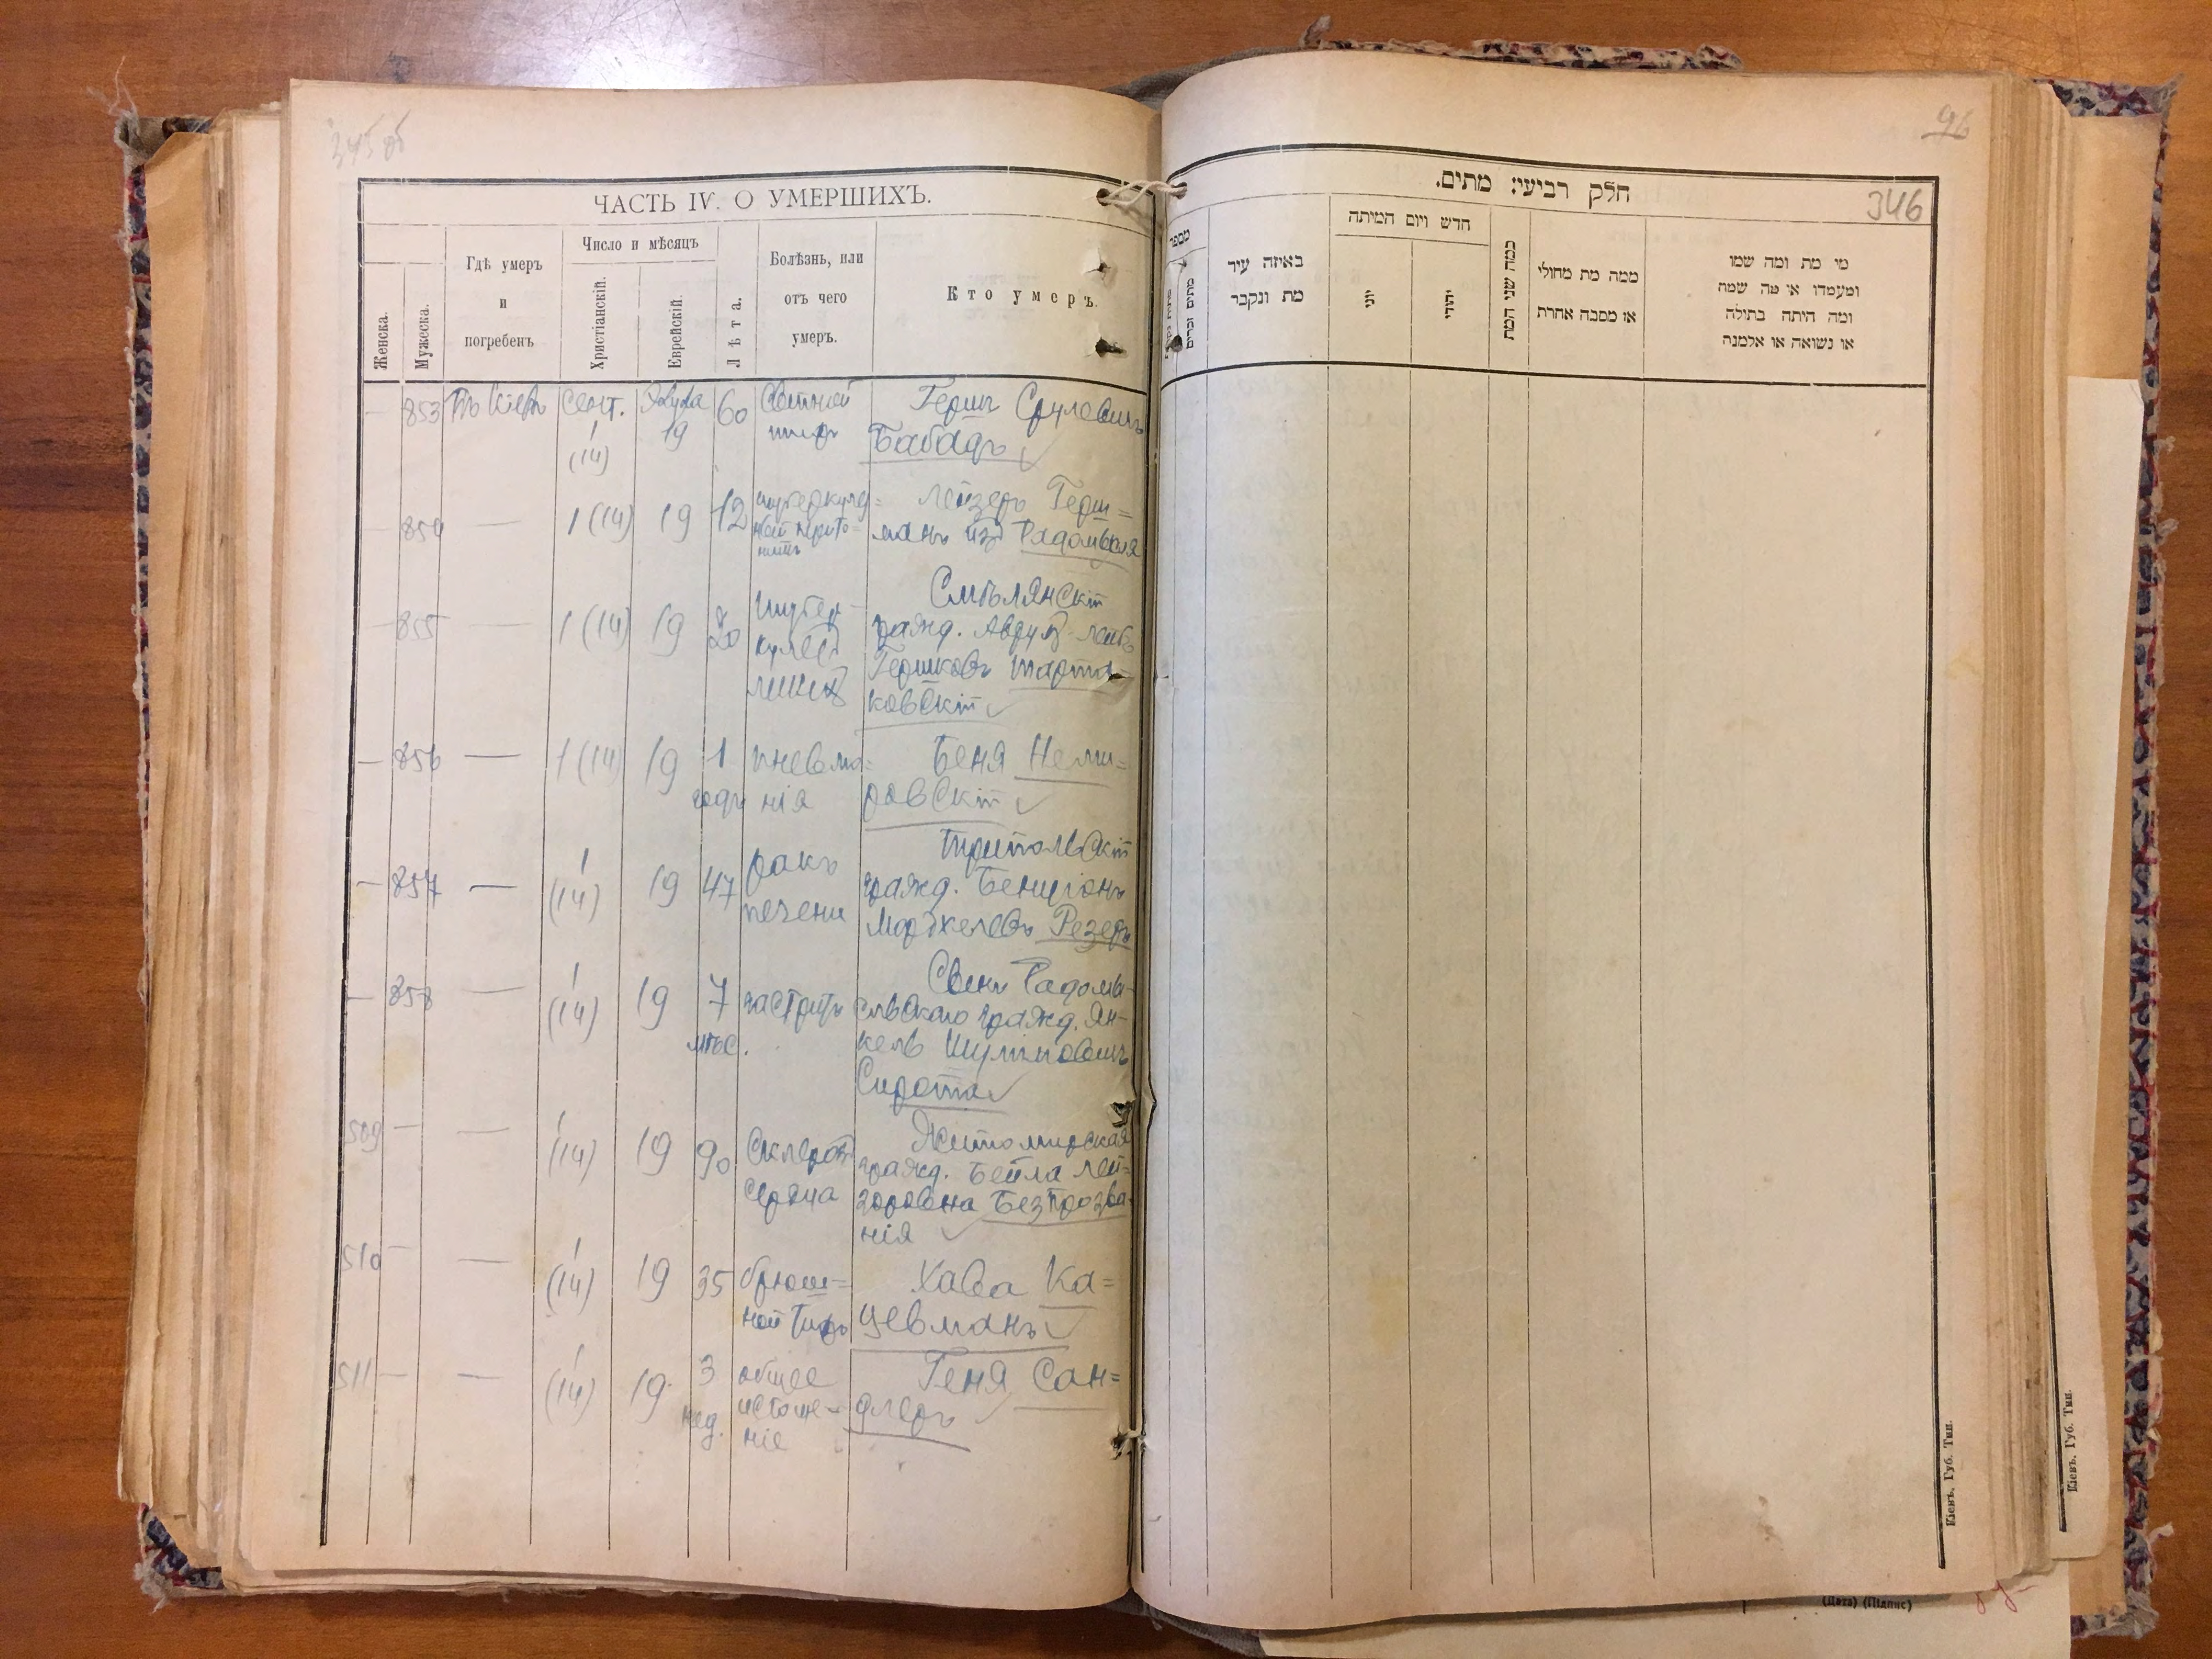 345 об
ЧАСТЬ IV. О УМЕРШИХЪ.
Женска.
Мужеска.
Гдѣ умеръ
и
погребенъ
Число и мѣсяцъ
Христіанскій.
Еврейскій.
Лѣта.
Болѣзнь, или
отъ чего
умеръ.
Кто умеръ.
— 853 Въ Кіевѣ Сент. 1 (14) Элула 19 60 Сыпной тифъ Гершъ Срулевичъ
Бабадъ
— 854 — 1 (14) 19 12 туберкулез=
ный перито=
нитъ
Лейзеръ Герш=
манъ из Радомысля
— 855 — 1 (14) 19 20 тубер-
кулез
легких
Смѣлянскій
гражд. Аврум-Лейб
Гершковъ Тарта-
ковскій
— 856 — 1 (14) 19 1
годъ
пневмо=
нія
Беня Неми=
ровскій
— 857 — 1
(14) 19 47 ракъ
печени
Трипольскій
гражд. Бенціонъ
Мордкелевъ Резеръ
— 858 — 1
(14) 19 7
мѣс.
гастритъ
Сынъ Радомы-
сльскаго гражд. Ян-
кель
Сирота
509 — — 1
(14) 19 90 Склероз
сердца
Житомирская
гражд. Бейла Лей=
зоровна Безпрозва-
нія
510 — — 1
(14) 19 35 брюш=
ной тифъ
Хава Ка=
цевманъ
511 — — 1
(14) 19 3
нед.
общее
истоще-
ніе
Геня Сан=
длеръ
96
346
חלק רביעי: מתים.
מספר
מתים זכרים
באיזה עיר
מת ונקבר
חדש ויום המיתה
יוני
יהודי
כמה שני המת
ממה מת מחולי
או מסבה אחרת
מי מת ומה שמו
ומעמדו או מה שמה
ומה היתה בתולה
או נשואה או אלמנה
Кіевъ. Губ. Тип.
Кіевъ. Губ. Тип.
(Дата) (Підпис)